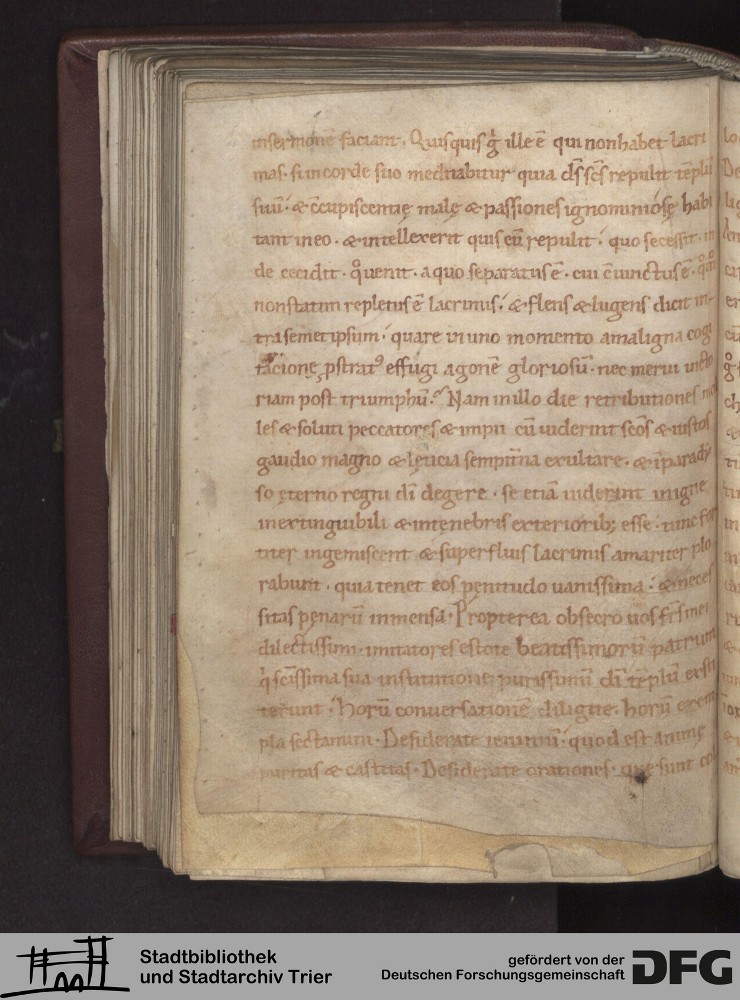 insermonē faciant. Quisquis ḡ ille ē qui non habet lacri
mas. si incorde suo meditabitur quia d̄s sc̄s repulit tēplū
suū. & c̄cupiscentię malę & passiones ignominiosę habi
tant in eo. & intellexerit quis eū repulit. quo secessit. in
de cecidit. quenit. a quo separatus ē. cui c̄iunctus ē.
non statim repletus ē lacrimis. & flens & lugens dicit in
tra semetipsum. quare in uno momento a maligna cogi
tacionę pstrat⁹ effugi agonē gloriosū. nec merui uicto
riam post triumphū. Nam in illo die retributiones
les & soluti peccatores & impii cū uiderint sc̄os & iustos
gaudio magno & lęticia sempit̄na exultare. & ī paradi
so ęterno regni d̄i degere. se etiā uiderint in igne
inextinguibili & in tenebris exteriorib; esse. tunc for
titer ingemiscent & superfluis lacrimis amariter plo
rabunt. quia tenet eos penitudo uanissima. & neces
sitas pęnarū inmensa. Propterea obsecro uos fr̄s mei
dilectissimi. imitatores estote beatissimorū patrum
q̇ sc̄issima sua institutione purissimū d̄i tēplū exsti
terunt. Horū conuersationē diligite. horū exem
pla sectamini. Desiderate ieiuniū. quod est animę
puritas & castitas. Desiderate orationes. quę sunt
Stadtbibliothek
und Stadtarchiv Trier
gefördert von der
Deutschen Forschungsgemeinschaft
DFG